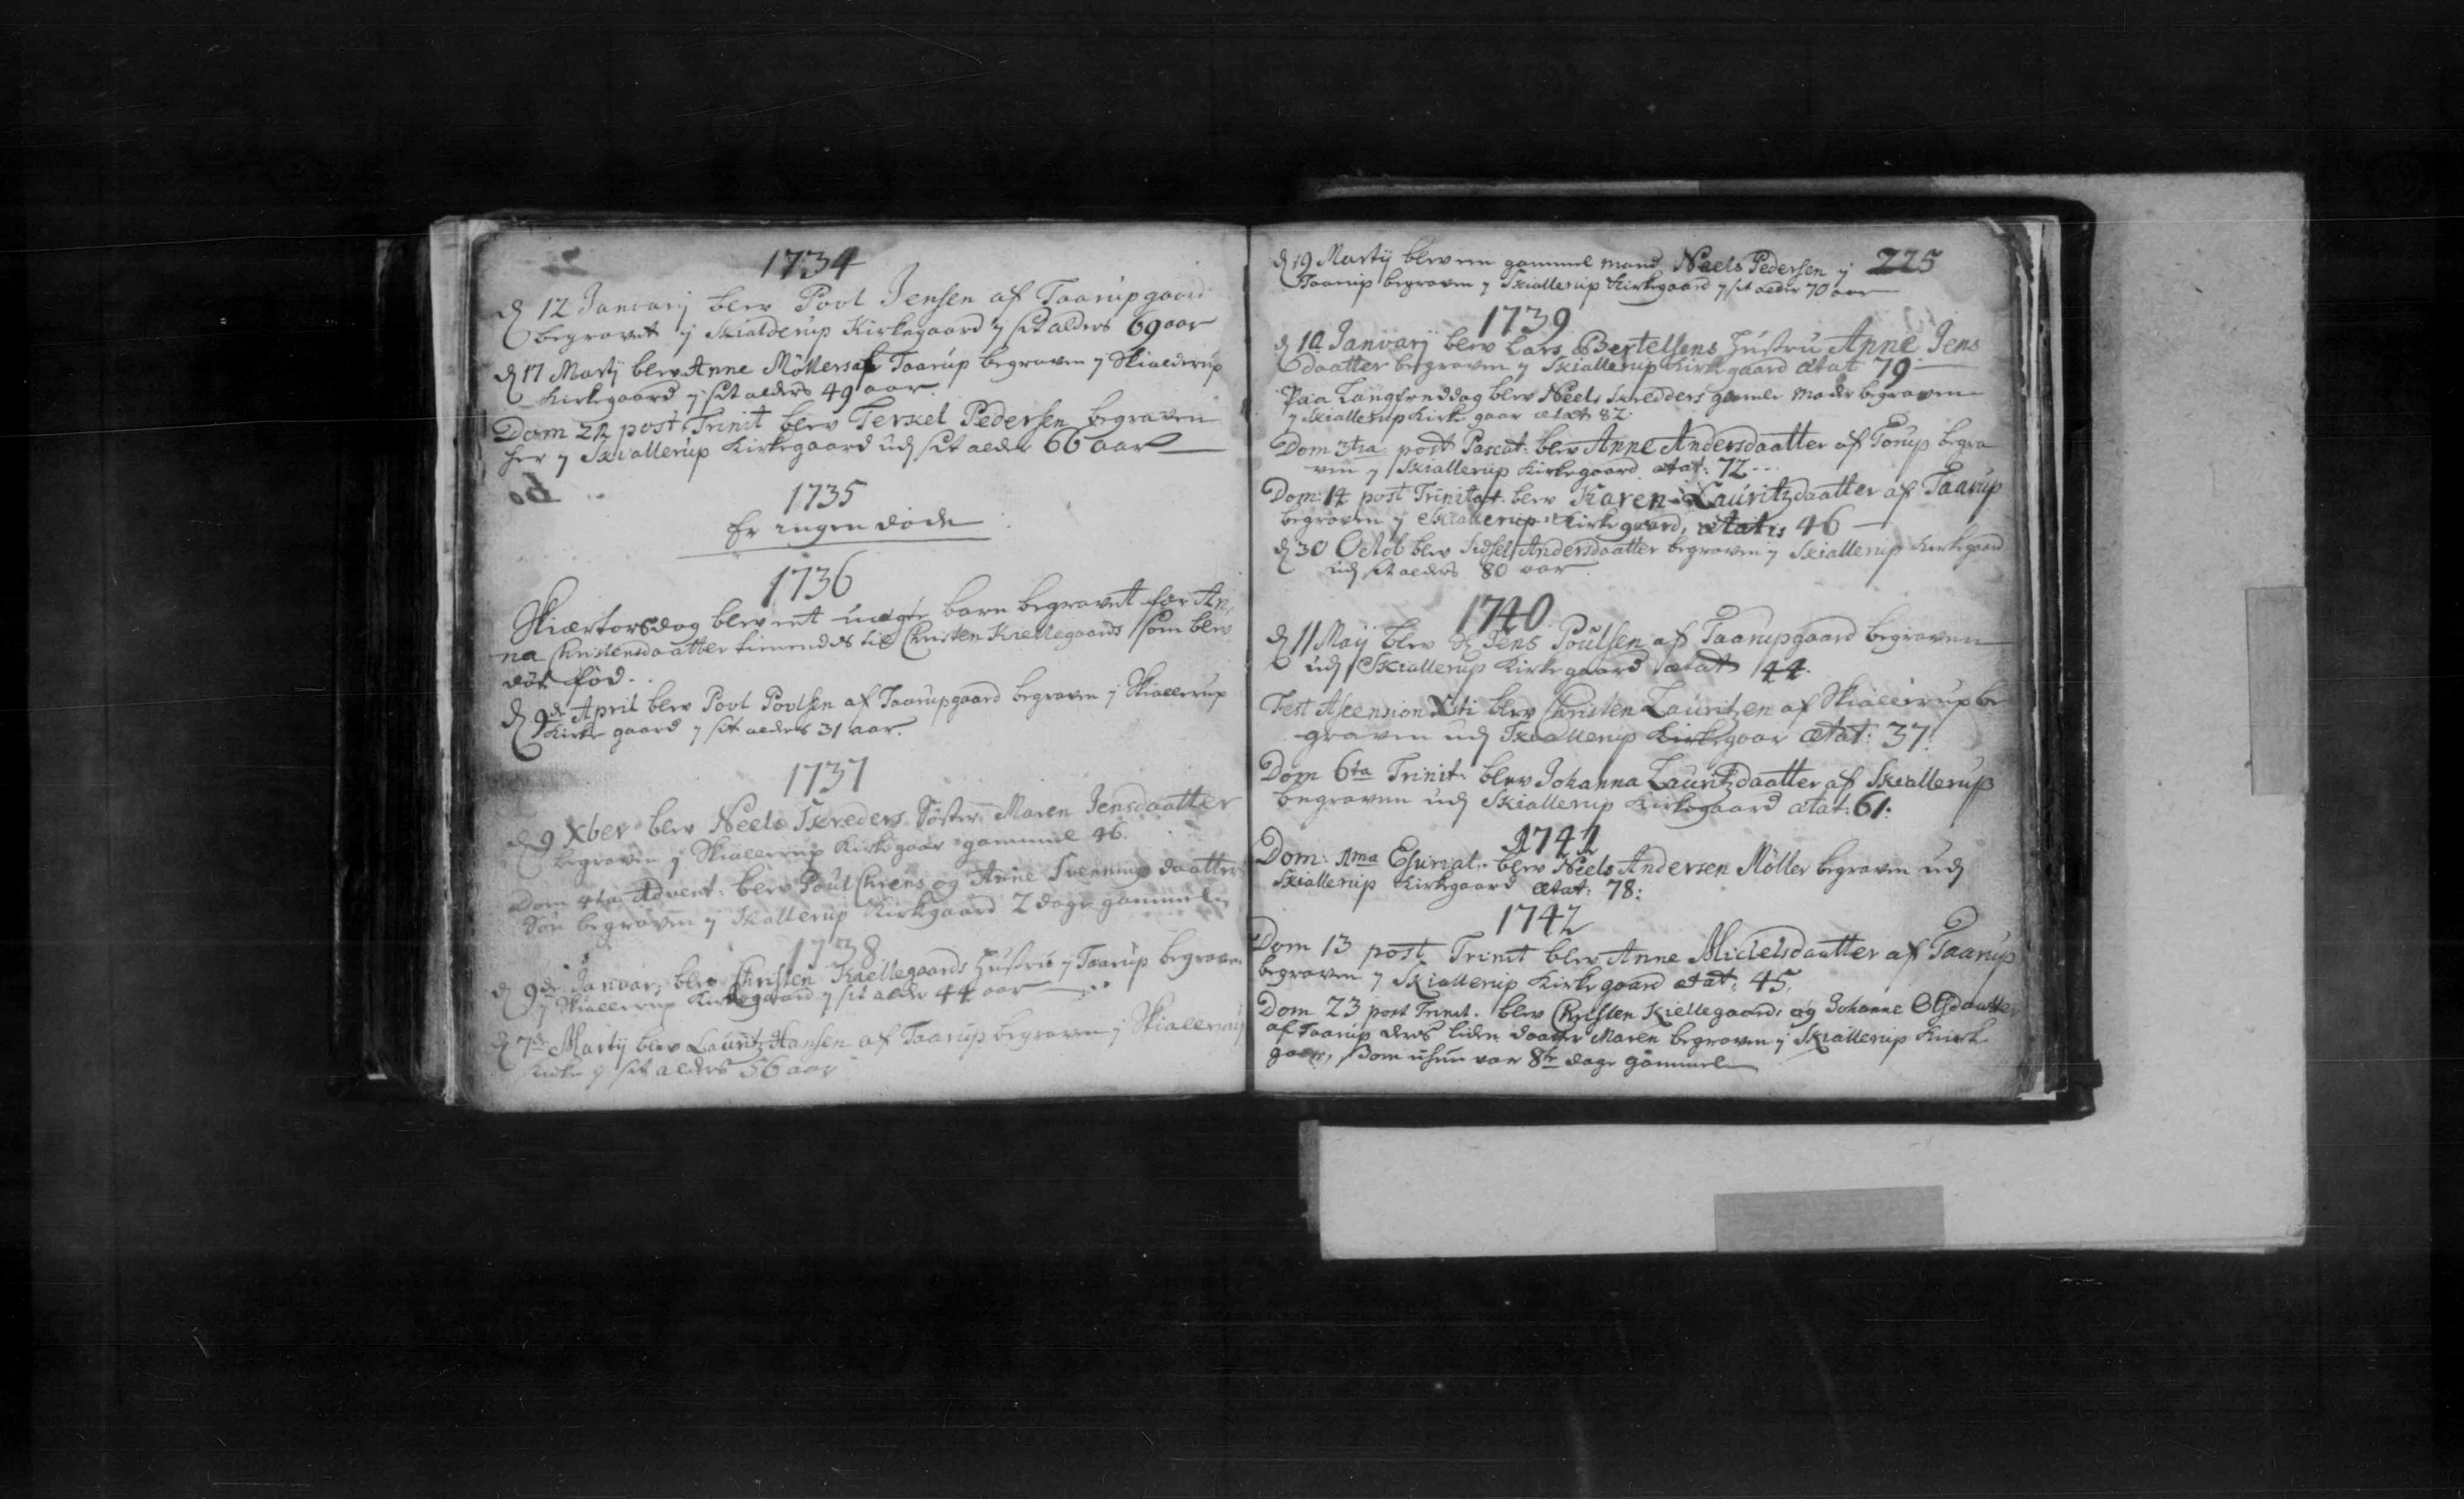 1734
d 12 Januarij blev Povl Jensen af Taarupgaard
begravet i Skialderup Kirkegaard i sit alders 69 aar
d 17 Martij blev Anne Möllers af Taarup begraven i Skialderup
Kirkegaard i sit alders 49 aar.
Dom 22 post Trinit blev Terkel Pedersen begraven
her i Skiallerup Kirkegaard udj sit alder 66 aar
1735
Er ingen döde
1736
Skiertorsdag blev ent barn begravet for An,
na Christensdaatter tienendes til Christen Kiellegaards som blev
död föd.
d 9de April blev Povl Povlsen af Taarupgaard begraven i Skiallerup
Kirke gaard i sit alders 31 aar.
1737
d 9 Xber blev Neels Skreders Söster Maren Jensdaatter
begraven i Skiallerup Kirkegaar gammel 46.
Dom 4ta Advent: blev Poul Chrens og Anne Svenning daatters
Sön begraven i Skallerup Kirkgaard 2 dage gammel
1738
d 9de Januar: blev Christen Kiellegaards Hustru i Taarup begraven
i Skiallerup Kirkegaard i sit alder 44 aar
d 7de Martij blev Lauritz Hansen af Taarup begraven i Skiallerup
Kirke i sit alders 56 aar
d 19 Martij blev en gammel mand Neels Pedersen i 225
Taarup begraven i Skiallerup Kirkegaard i sit alder 70 aar
1739
d 10 Januarij blev Lars Bertelsens Hustru Anne Jens
daatter begraven i Skiallerup Kirkegaard ætat 79
Paa Langfreddag blev Neels Skredders gamle Moder begraven
i Skiallerup Kirke gaar ætat 82.
Dom 3tia post Pascat: blev Anne Andersdaatter af Torup begra
ven i Skiallerup Kirkegaard ætat: 72
Dom 14 post Trinitat. blev Karen Lauritzdaatter af Taarup
begraven i Skiallerup Kirkegaard, ætatis 46
d 30 Octob blev Sidsel Andersdaatter begraven i Skiallerup Kirkegaard
udj sit alders 80 aar
1740
d 11 Maij blev Jens Poulsen af Taarupgaard begraven
udj Skiallerup Kirkegaard ætat 44.
Fest Ascension Xsti blev Christen Lauritzen af Skiallerup be
graven udj Skiallerup Kirkegaar ætat: 37.
Dom 6ta Trinit: blev Johanna Lauritzdaatter af Skiallerup
begraven udj Skiallerup Kirkegaard ætat: 61:
1741
Dom: 1ma blev Neels Andersen Möller begraven udj
Skiallerup Kirkegaard ætat: 78:
1742
Dom 13 post Trinit blev Anne Michelsdaatter af Taarup
begraven i Skiallerup Kirkegaard ætat: 45.
Dom 23 post Trinit. blev Christen Kiellegaards og Johanne Olsdaatter
af Taarup deres liden daatter Maren begraven i Skiallerup Kirk
gaar, som var 8te dage gammel